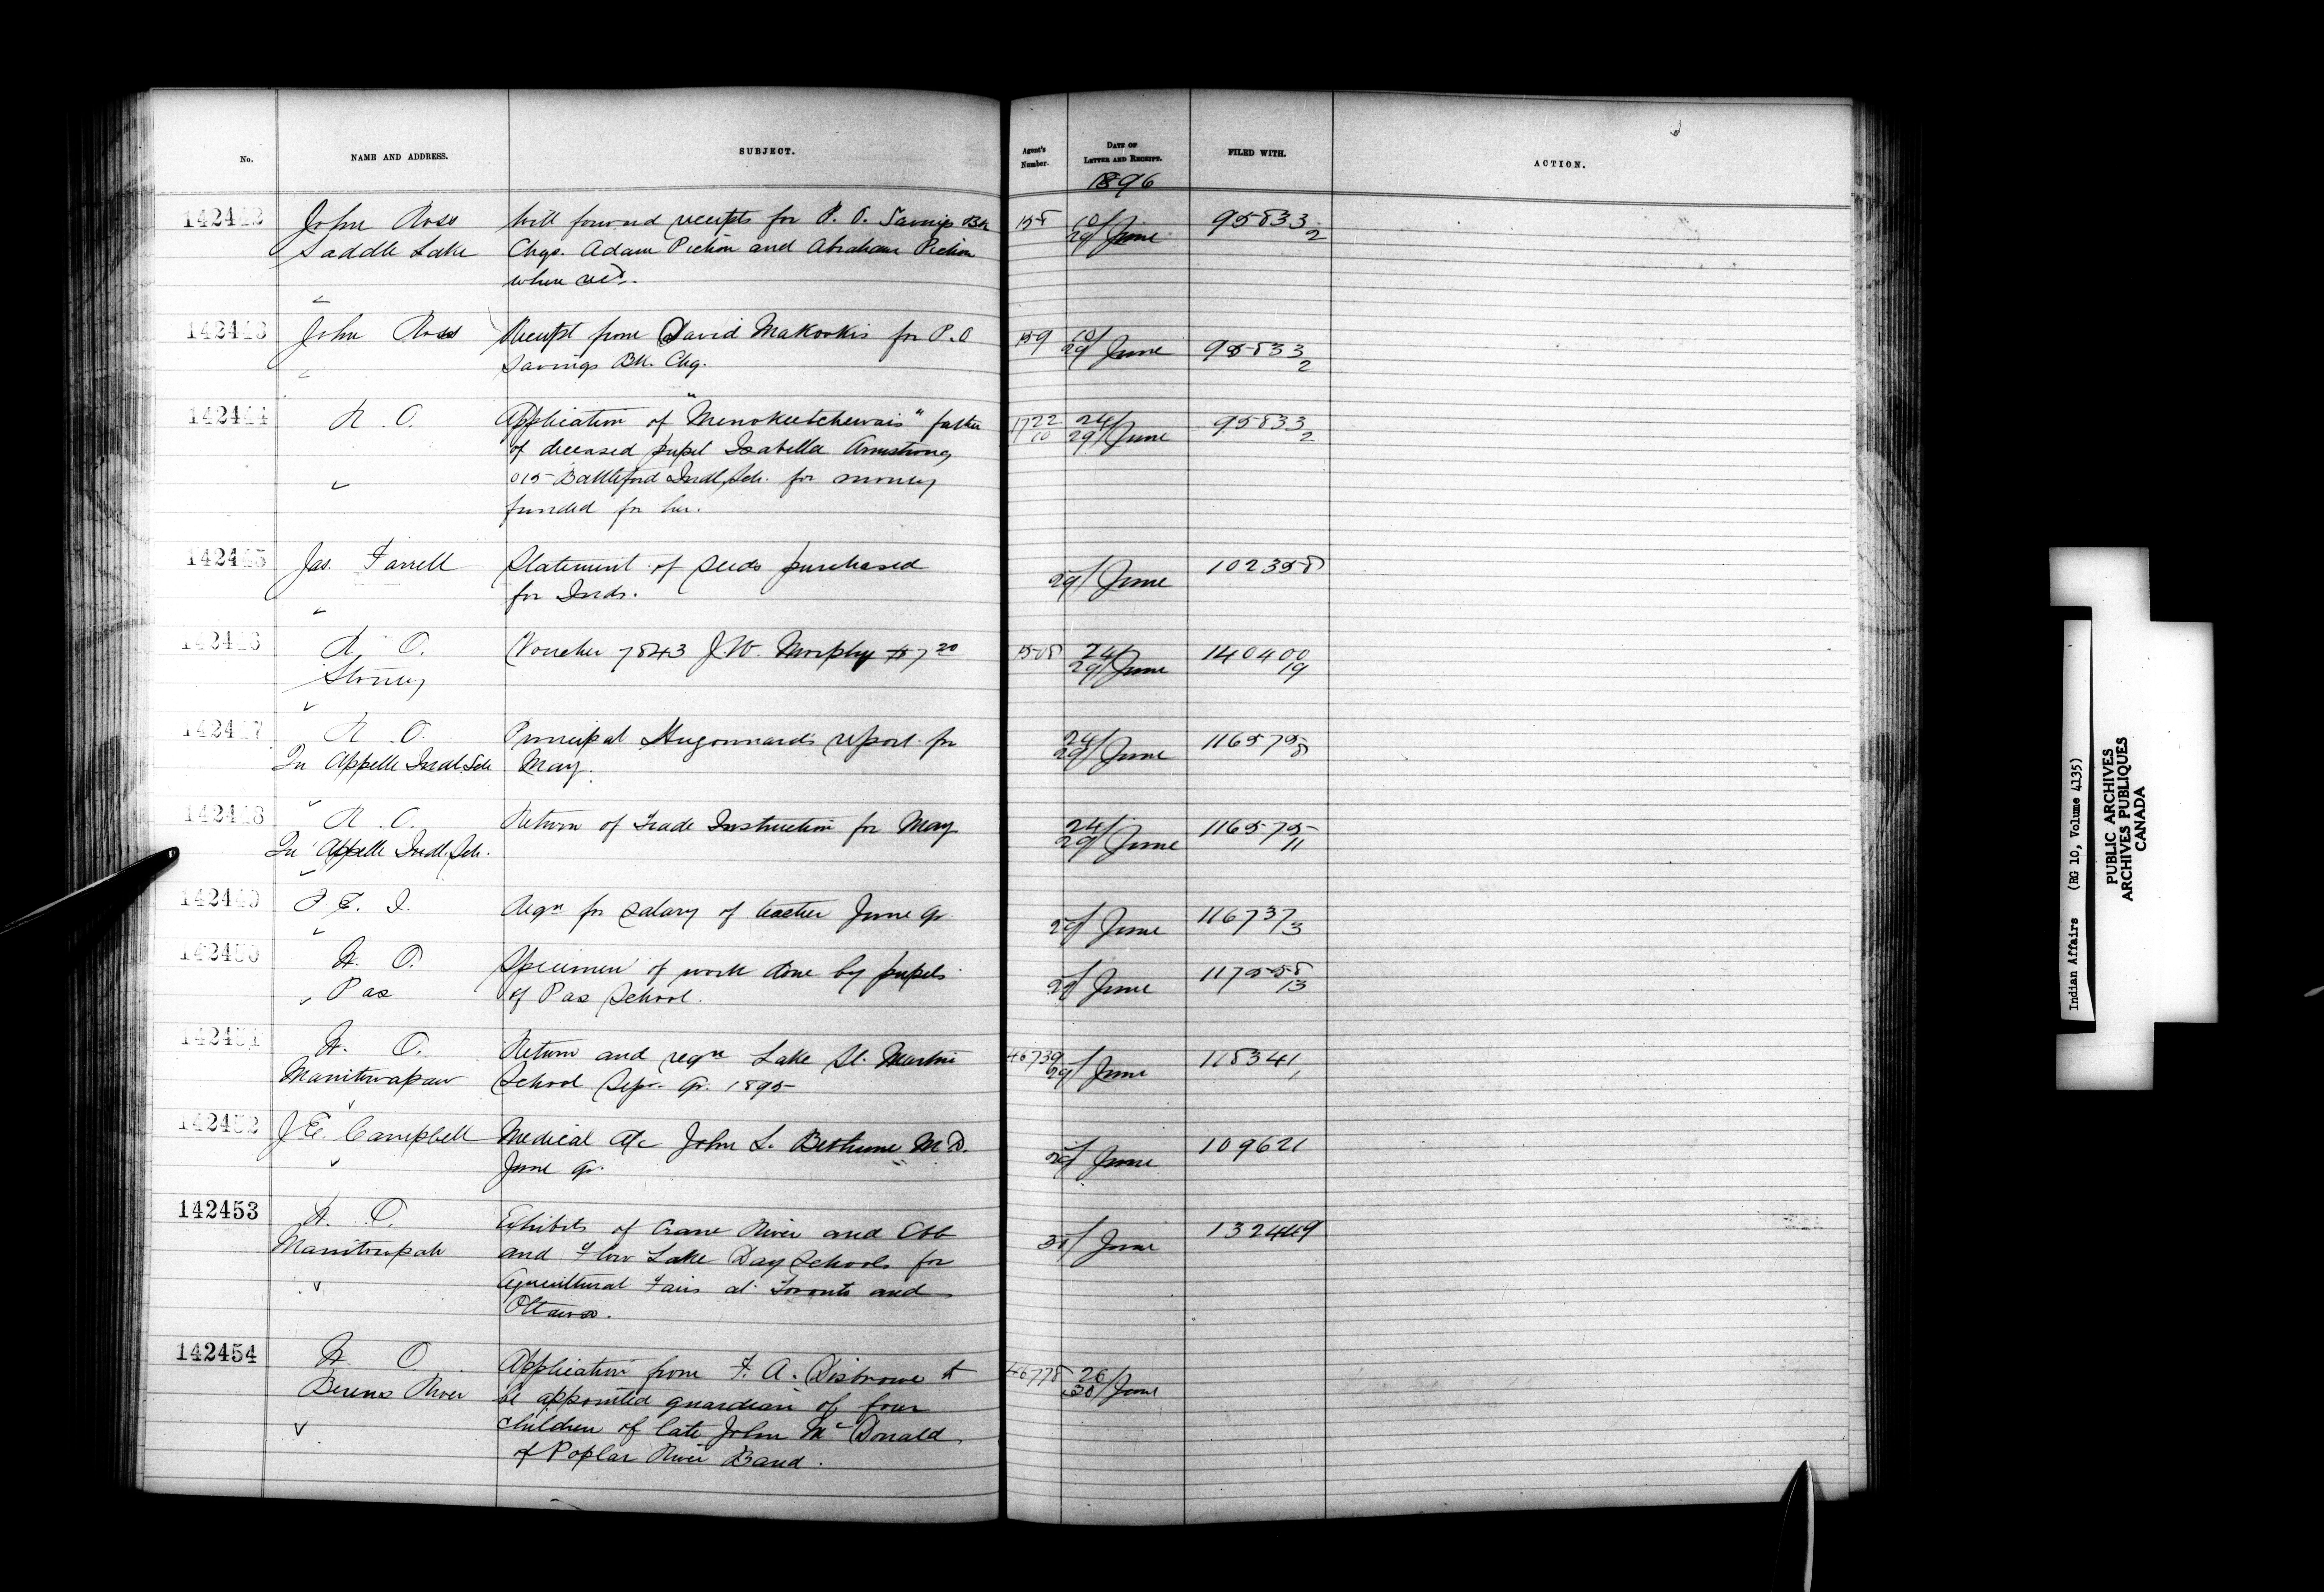 No.
NAME AND ADDRESS.
SUBJECT.
Agent's Number.
DATE OF LETTER AND RECEIPT.
FILED WITH.
ACTION.
1896
142442 John Ross Will forward receipts for P. O. Savings Bk 158 10/ June 95833
Saddle Lake Chqs. Adam Pichon and Abraham Pichon 29/ 2
when recd.
142443 John Ross Receipt from David Makookis for P.O 159 10/ June 95833
Savings Bk. Chq. 29/ 2
142444 R. O. Application of "Menokeetchewais" father 1722/10 24/ June 95833
of deceased pupil Isabella Armstrong 29/ 2
015 Battleford Indl. Sch. for money
funded for her.
142445 Jas. Farrell Statement of seeds purchased 29/ June 102358
for Inds.
142446 R. O. Voucher 7843 J.W. Morphy $7 20 1508 24/ June 140400
Stoney 29/ 19
142447 R. O. Principal Hugonnard's report for 24/ June 116575
Qu' Appelle Indl. Sch May. 29/ 8
142448 R. O. Return of Trade Instruction for May 24/ June 116575
Qu' Appelle Indl. Sch. 29/ 11
142449 P. E. I. Reqn for salary of teacher June qr. 29/ June 116737
3
142450 W. O. Specimen of work done by pupils 29/ June 117558
Pas of Pas School. 13
142451 W. O. Return and reqn Lake St. Martin 46739 29/ June 118341
Manitowapaw School Sepr. Qr. 1895 1
142452 J E. Campbell Medical A/c John L. Bethune M.D. 29/ June 109621
June qr.
142453 W. O. Exhibits of Crane River and Ebb 30/ June 132449
Manitowpah and Flow Lake Day Schools for
Agricultural Fairs at Toronto and
Ottawa.
142454 W. O. Application from F. A. Disbrowe to 46778 26/ June
Berens River be appointed guardian of four 30/
children of late John McDonald
of Poplar River Band.
Indian Affairs (RG 10, Volume 4135)
PUBLIC ARCHIVES
ARCHIVES PUBLIQUES
CANADA